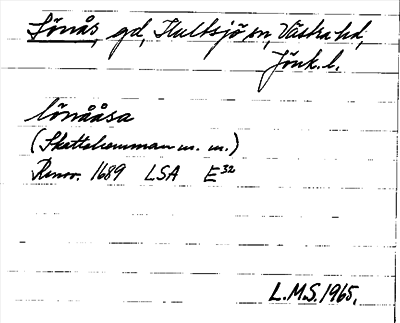 Lönås, gd, Hultsjö sn, Västra hd,
Jönk. l.
lönååsa
(Skattehemman m. m.)
Renov. 1689 LSA E³²
L.M.S. 1965.